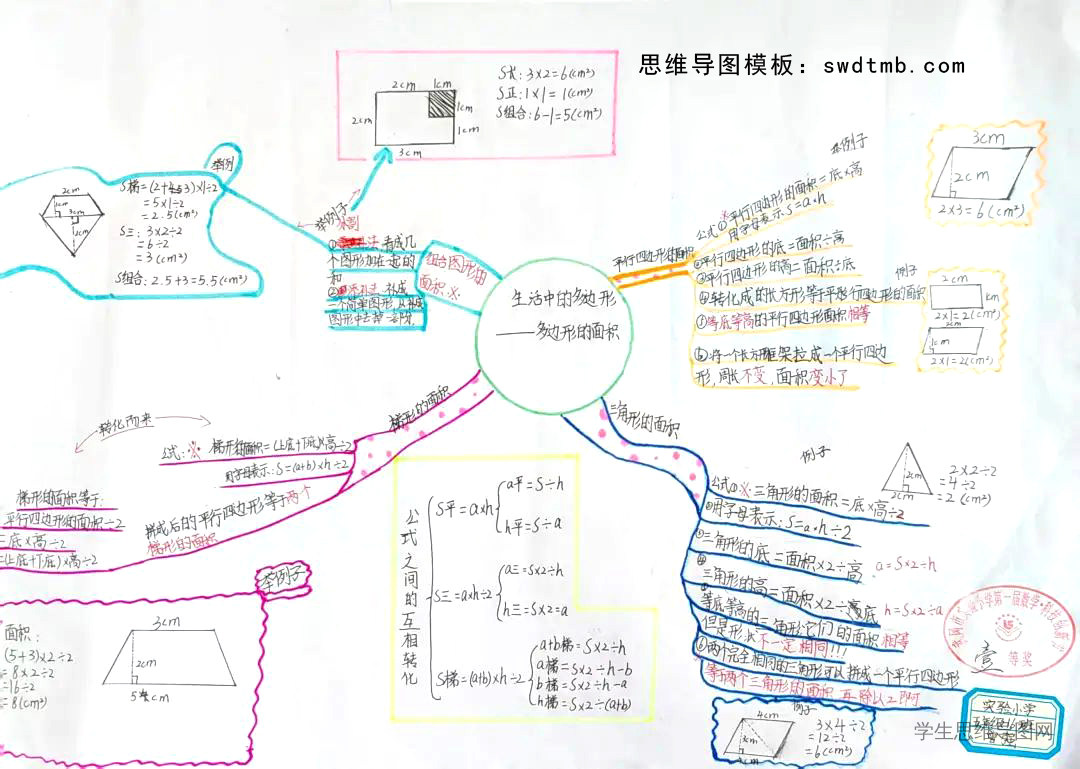 思维导图模板：swdtmb.com
2cm
1cm
1cm
2cm
1cm
3cm
S长：3×2=6(cm²)
S正：1×1=1(cm²)
S组合：6-1=5(cm²)
举例
2cm
1cm
3cm
S梯=(2+3)×1÷2
=5×1÷2
=2.5(cm²)
S三：3×2÷2
=6÷2
=3(cm²)
S组合：2.5+3=5.5(cm²)
举例子
看成几
个图形加在一起的
和
一个简单图形,从
图形中去掉一部分.
组合图形的
面积.※
生活中的多边形
——多边形的面积
平行四边形的面积
举例子
公式①※平行四边形的面积=底×高
用字母表示:S=a×h
②平行四边形的底=面积÷高
③平行四边形的高=面积÷底
④转化成的长方形等于平行四边形的面积
⑤等底等高的平行四边形面积相等
⑥将一个长方形框架拉成一个平行四边
形,周长不变,面积变小了
3cm
2cm
2×3=6(cm²)
例子
2cm
2×1=2(cm²)
2cm
1cm
2×1=2(cm²)
梯形的面积
转化而来
公式:※ 梯形的面积=(上底+下底)×高÷2
用字母表示:S=(a+b)×h÷2
拼成后的平行四边形等于两个
梯形的面积
梯形的面积等于:
平行四边形的面积÷2
=底×高÷2
=(上底+下底)×高÷2
举例子
面积:
(5+3)×2÷2
=8×2÷2
=16÷2
=8(cm²)
3cm
2cm
5cm
公式之间的互相转化
S平=a×h
a平=S÷h
h平=S÷a
S三=a×h÷2
a三=S×2÷h
h三=S×2=a
S梯=(a+b)×h÷2
a+b梯=S×2÷h
a梯=S×2÷h-b
b梯=S×2÷h-a
h梯=S×2÷(a+b)
三角形的面积
例子
2cm
2cm
2×2÷2
=4÷2
=2(cm²)
公式①※三角形的面积=底×高÷2
②用字母表示:S=a×h÷2
三角形的底=面积×2÷高
a=S×2÷h
三角形的高=面积×2÷底
h=S×2÷a
等底等高的三角形它们的面积相等
但是形状不一定相同!!!
⑥两个完全相同的三角形可以拼成一个平行四边形
等于两个三角形的面积 再除以2即可
例子
4cm
3cm
3×4÷2
=12÷2
=6(cm²)
小学第一届数学
壹
等奖
实验小学
学生思维导图网